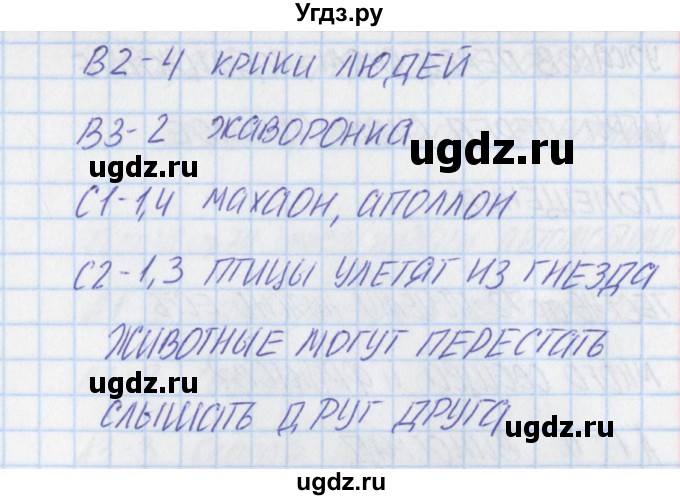 Угдз.ру
В2-4 КРИКИ ЛЮДЕЙ
В3-2 ЖАВОРОНКА
ugdz.ru
ugdz.ru
С1-1,4 МАХАОН, АПОЛЛОН
ugdz.ru
С2-1,3 ПТИЦЫ УЛЕТЯТ ИЗ ГНЕЗДА
ЖИВОТНЫЕ МОГУТ ПЕРЕСТАТЬ
ugdz.ru
СЛЫШАТЬ ДРУГ ДРУГА
ugdz.ru
ugdz.ru